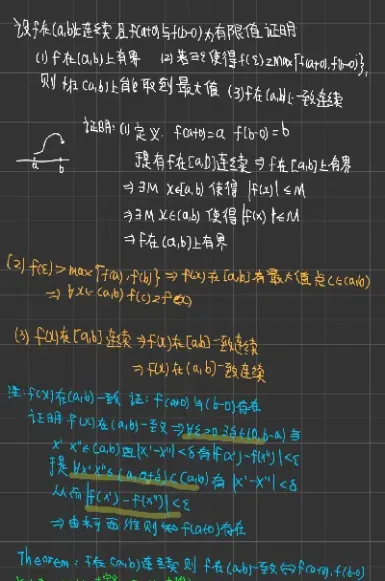 设f在(a,b)上连续且f(a+0)与f(b-0)为有限值 证明
(1) f在(a,b)上有界 (2) 若∃ξ使得f(ξ)≥max{f(a+0),f(b-0)},
则f在(a,b)上能取到最大值 (3) f在(a,b)上一致连续
证明:(1) 定义. f(a+0)=a f(b-0)=b
a b
f在[a,b]连续⇒f在[a,b]上有界
⇒∃M x∈[a,b) 使得 |f(x)|≤M
⇒∃M x∈(a,b) 使得 |f(x)|≤M
⇒f在(a,b)上有界
(2) f(ξ)>max{f(a),f(b)}⇒f(x)在[a,b]有最大值点c∈(a,b)
⇒∀x∈(a,b) f(c)≥f(x)
(3) f(x)在[a,b]连续⇒f(x)在[a,b]一致连续
⇒f(x)在(a,b)一致连续
注:f(x)在(a,b)一致 证: f(a+0)与(b-0)存在
证明f(x)在(a,b)一致⇒∀ε>0 ∃δ∈(0,b-a)当
x' x''∈(a,b)且|x'-x''|<δ有|f(x')-f(x'')|<ε
∀x' x''∈(a,a+δ)⊂(a,b)有|x'-x''|<δ
从而|f(x')-f(x'')|<ε
⇒由柯西准则知f(a+0)存在
Theorem: f在(a,b)连续则f在(a,b)一致⇔f(a+0),f(b-0)